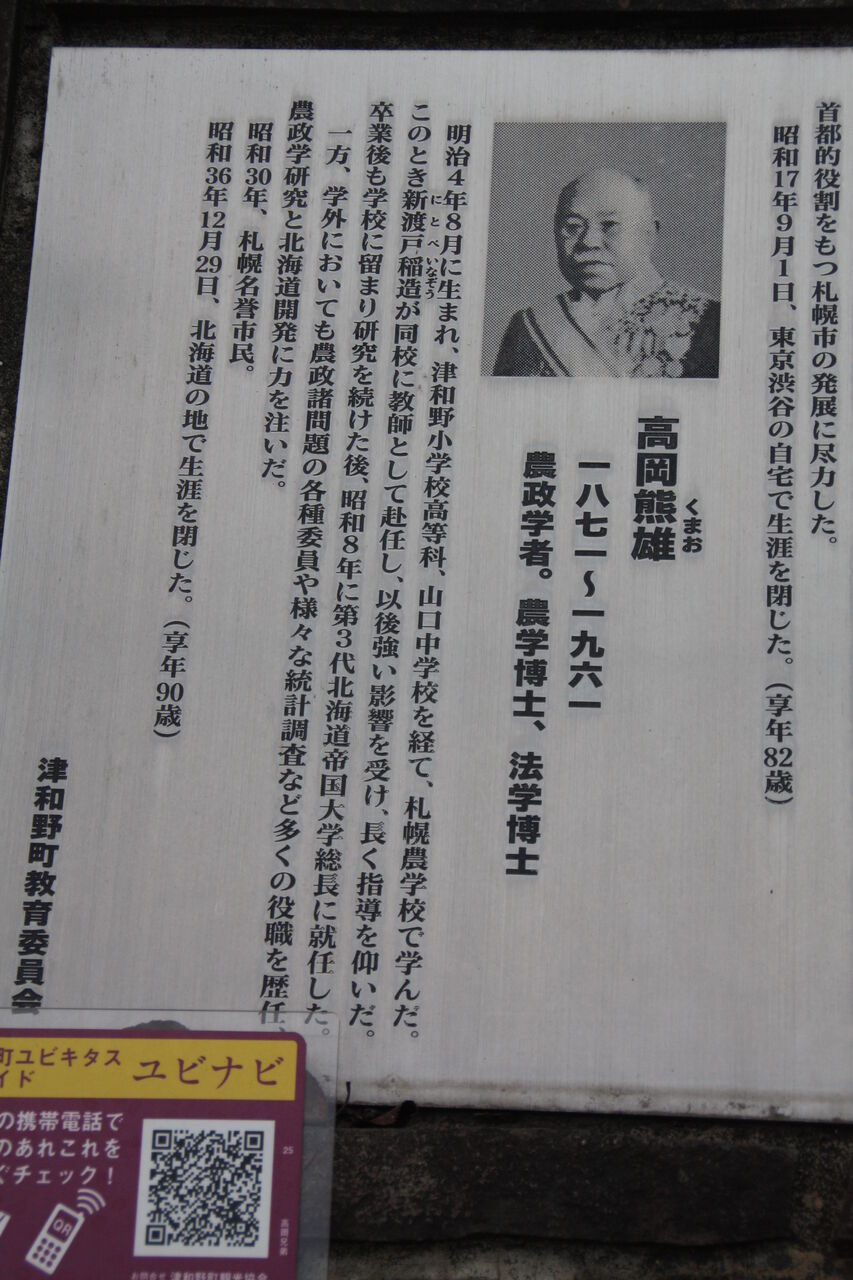 首都的役割をもつ札幌市の発展に尽力した。
昭和17年9月1日、東京渋谷の自宅で生涯を閉じた。（享年82歳）
高岡熊雄
くまお
一八七一～一九六一
農政学者。農学博士、法学博士
明治4年8月に生まれ、津和野小学校高等科、山口中学校を経て、札幌農学校で学んだ。
このとき新渡戸稲造が同校に教師として赴任し、以後強い影響を受け、長く指導を仰いだ。
にとべいなぞう
卒業後も学校に留まり研究を続けた後、昭和8年に第3代北海道帝国大学総長に就任した。
一方、学外においても農政諸問題の各種委員や様々な統計調査など多くの役職を歴任、
農政学研究と北海道開発に力を注いだ。
昭和30年、札幌名誉市民。
昭和36年12月29日、北海道の地で生涯を閉じた。（享年90歳）
津和野町教育委員会
町ユビキタス
イド
ユビナビ
の携帯電話で
のあれこれを
ぐチェック！
QR
25
高岡兄弟
お問合せ 津和野町観光協会